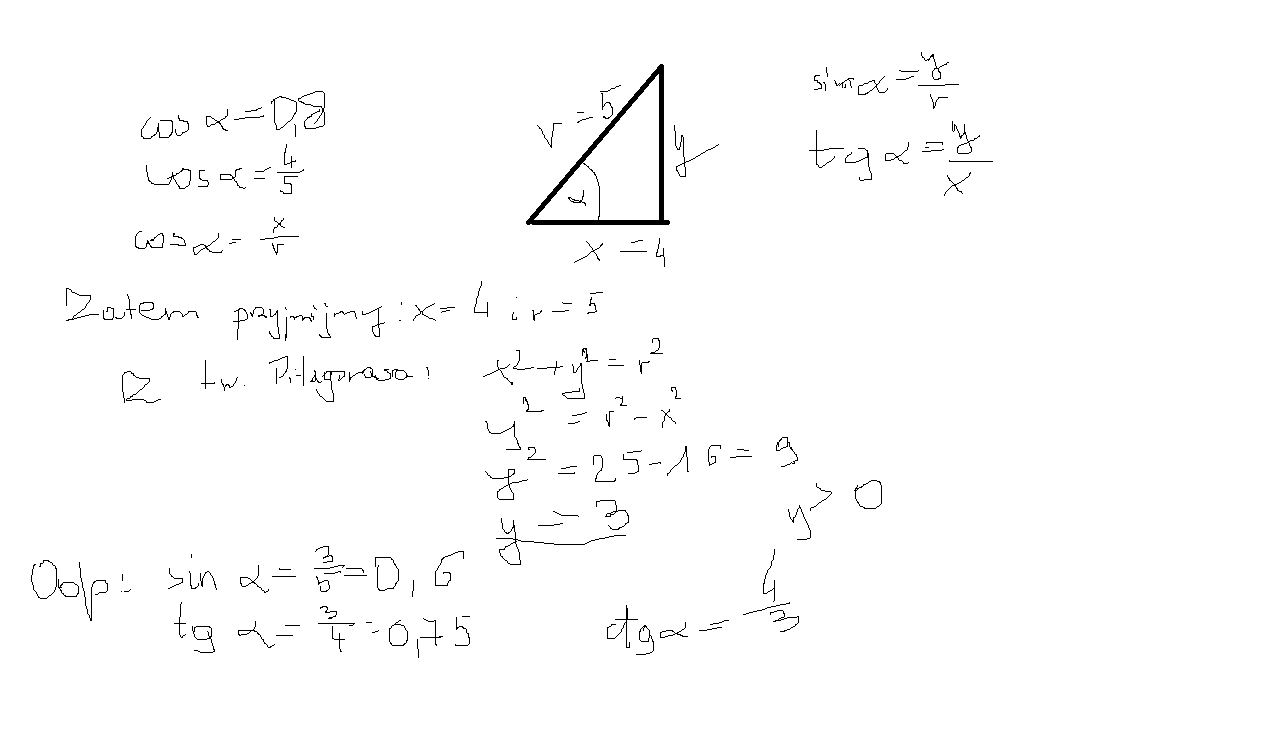 cos α = 0,8
cos α = 4/5
cos α = x/r
r = 5
y
α
x = 4
sin α = y/r
tg α = y/x
Zatem przyjmijmy: x = 4 i r = 5
Z tw. Pitagorasa: x² + y² = r²
y² = r² - x²
y² = 25 - 16 = 9
y = 3
y > 0
Odp: sin α = 3/5 = 0,6
tg α = 3/4 = 0,75
ctg α = 4/3